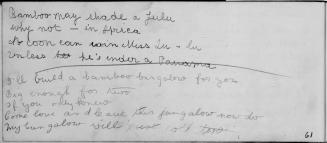 Bamboo may shade a Lulu
Why not - in Africa
A coon can win Miss Lu-lu
Unless he's under a Panama
I'll build a bamboo bungalow for you
Big enough for two
If you only knew
Come love and
My bungalow
61